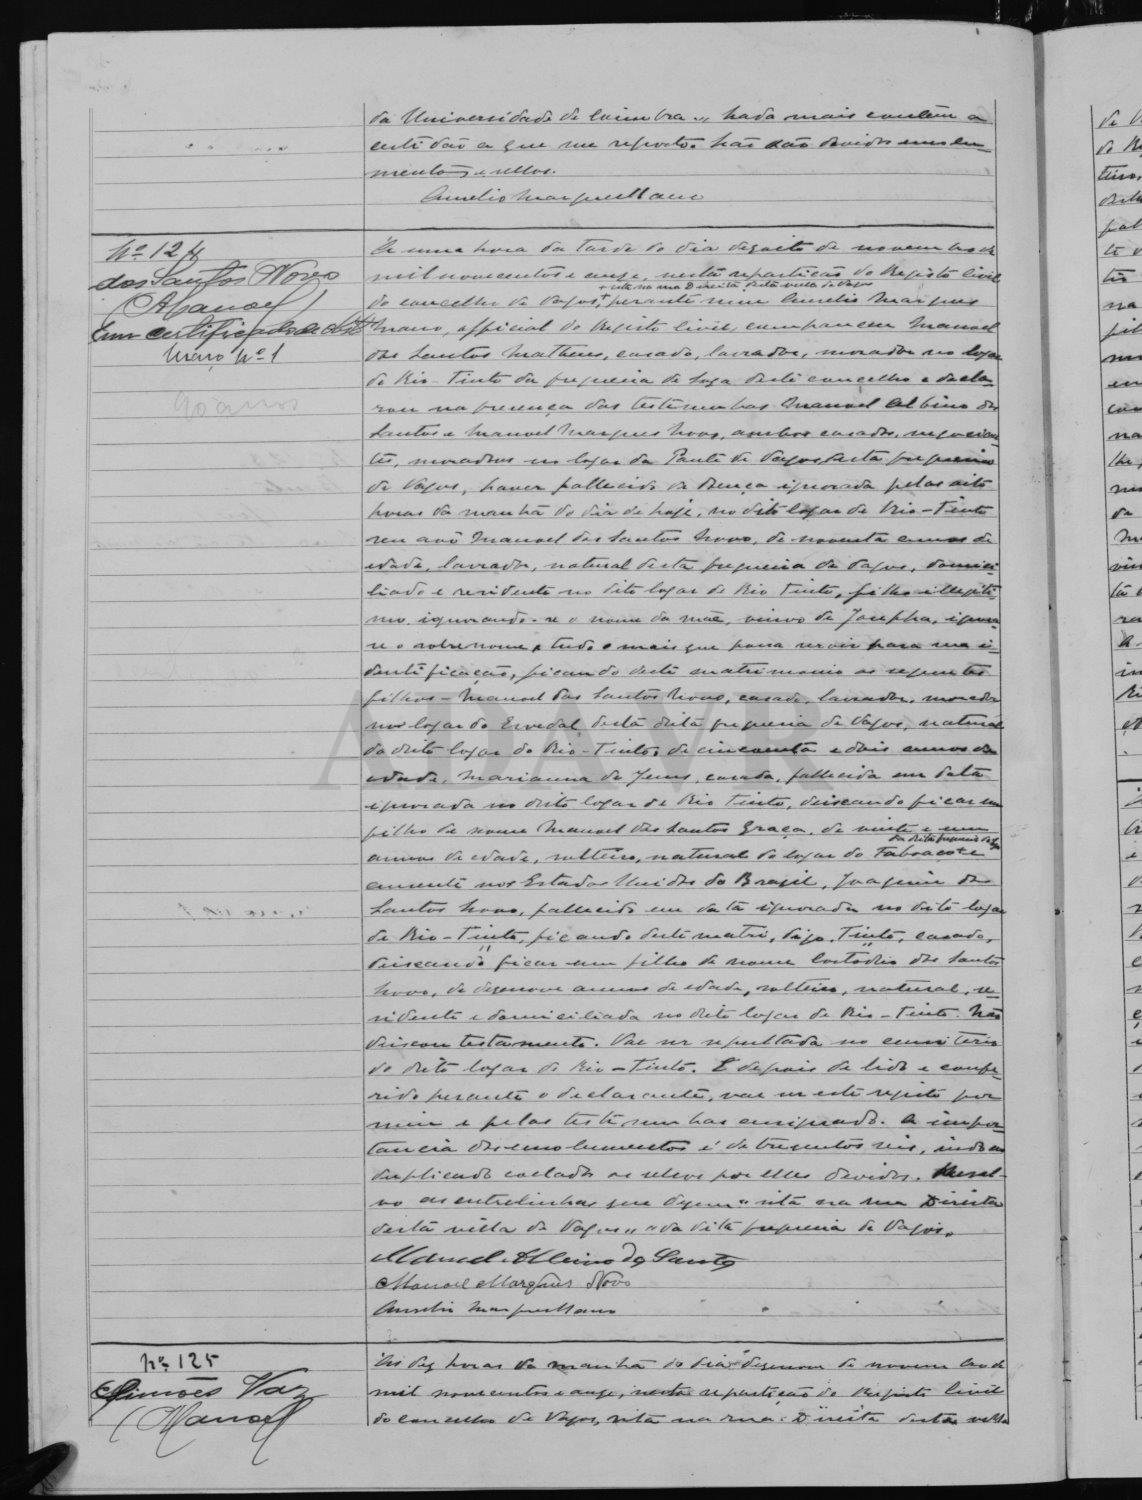 da Universidade de Coimbra.,, Nada mais contêm a
certidão a que me reporto. Não são devidos emolu-
mentos e sellos.
Aurelio Marques Mano
Nº 124
dos Santos Novo
(Manoel)
Em certificado de obito
Maço nº 1
90 annos
Á uma hora da tarde do dia dezoito de novembro de
mil novecentos e onze, nesta repartição do Registo civil
+ sita na rua Direita desta villa de Vagos
do concelho de Vagos,+ perante mim Aurelio Marques
Mano, official do Registo civil, compareceu Manoel
dos Santos Matheus, casado, lavrador, morador no logar
de Rio-Tinto da freguezia de Soza deste concelho e decla-
rou na presença das testemunhas Manoel Albino dos
Santos e Manoel Marques Novo, ambos casados, negocian-
tes, moradores no logar da Ponte de Vagos desta freguezia
de Vagos, haver fallecido de doença ignorada pelas oito
horas da manhã do dia de hoje, no dito logar de Rio-Tinto
seu avô Manoel dos Santos Novo, de noventa annos de
edade, lavrador, natural desta freguezia de Vagos, domici-
liado e residente no dito logar de Rio Tinto, filho illegiti-
mo, ignorando-se o nome da mãe, viuvo de Josepha, ignora-
se o sobrenome e tudo o mais que possa servir para sua i-
dentificação, ficando deste matrimonio os seguintes
filhos - Manoel dos Santos Novo, casado, lavrador, morador
no logar do Ervedal, desta dita freguezia de Vagos, natural
do dito logar do Rio-Tinto, de cincoenta e dois annos de
edade, Marianna de Jesus, casada, fallecida em data
ignorada no dito logar de Rio Tinto, deixando ficar um
filho de nome Manoel dos Santos Graça, de vinte e um
annos de edade, solteiro, natural do logar do e
ausente nos Estados Unidos do Brazil, Joaquim dos
Santos Novo, fallecido em data ignorada no dito logar
de Rio-Tinto, ficando deste matri, digo, Tinto, casado,
deixando ficar um filho de nome Custodio dos Santos
Novo, de dezenove annos de edade, solteiro, natural, re-
sidente e domiciliado no dito logar de Rio-Tinto. Não
deixou testamento. Vae ser sepultado no cemiterio
do dito logar de Rio-Tinto. E depois de lido e confe-
rido perante o declarante, vae ser este registo por
mim e pelas testemunhas assignado. A impor-
tancia dos emolumentos é de trezentos reis, indo no
duplicado collados os sellos por elles devidos. Resal-
vo as entrelinhas que dizem "sita na rua Direita
desta villa de Vagos" "da dita freguezia de Vagos.
Manoel Albino dos Santos
Manoel Marques Novo
Aurelio Marques Mano
Nº 125
Simões Vaz
(Manoel
Ás dez horas da manhã do dia dezenove de novembro de
mil novecentos e onze, nesta repartição do Registo Civil
do concelho de Vagos, sita na rua Direita desta villa
ADAVR